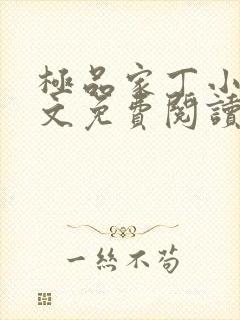 極品家丁小
文免費閱讀
一絲不茍